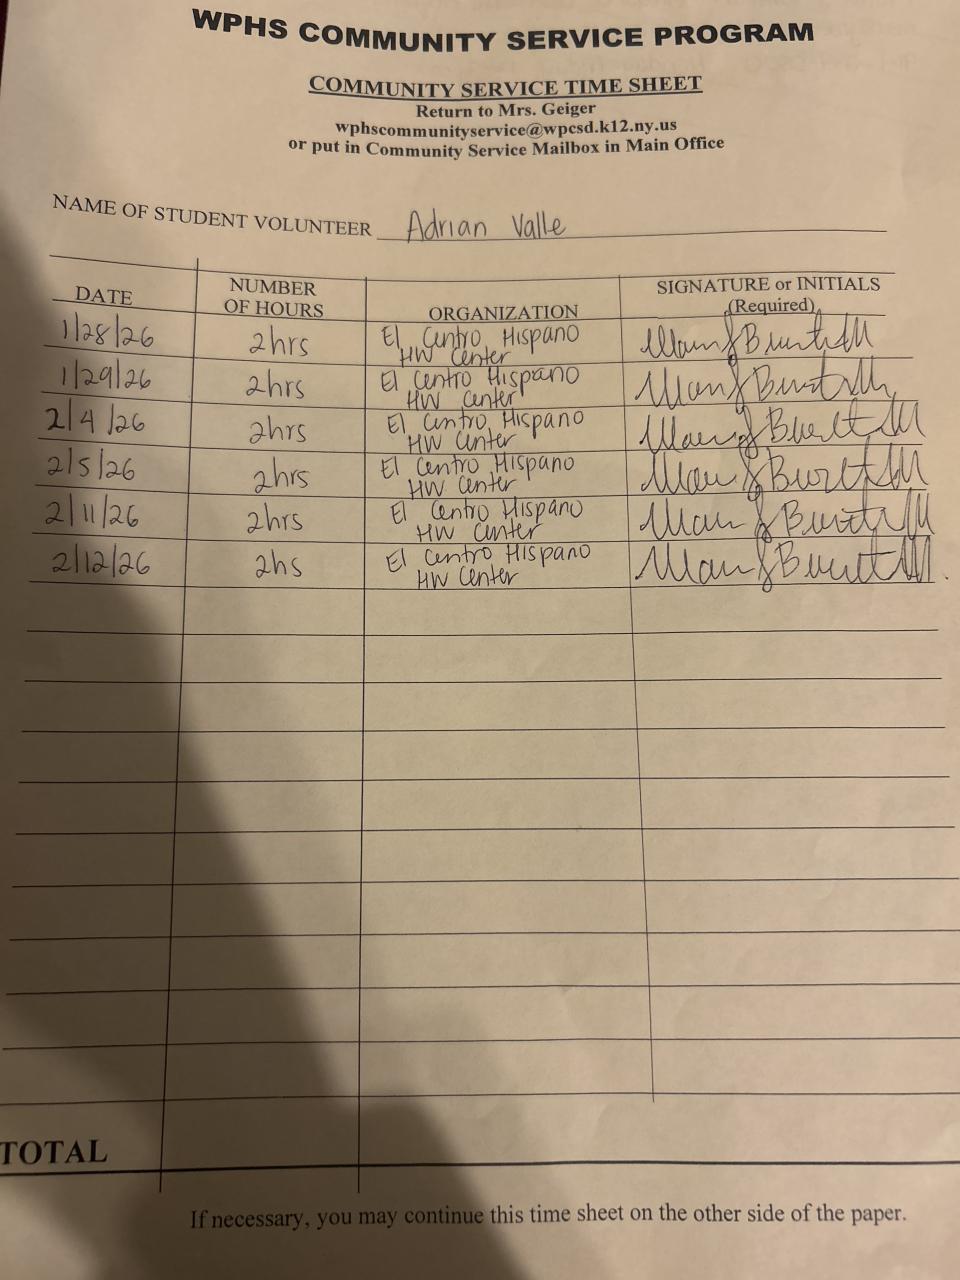 WPHS COMMUNITY SERVICE PROGRAM
COMMUNITY SERVICE TIME SHEET
Return to Mrs. Geiger
wphscommunityservice@wpcsd.k12.ny.us
or put in Community Service Mailbox in Main Office
NAME OF STUDENT VOLUNTEER Adrian Valle
DATE NUMBER OF HOURS ORGANIZATION SIGNATURE or INITIALS (Required)
1/28/26 2hrs El Centro Hispano
HW Center
1/29/26 2hrs El Centro Hispano
HW Center
2/4/26 2hrs El Centro Hispano
HW Center
2/5/26 2hrs El Centro Hispano
HW Center
2/11/26 2hrs El Centro Hispano
HW Center
2/12/26 2hs El Centro Hispano
HW Center
TOTAL
If necessary, you may continue this time sheet on the other side of the paper.